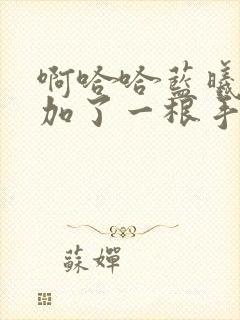 啊哈哈藍曦
加了一根手
蘇嬋